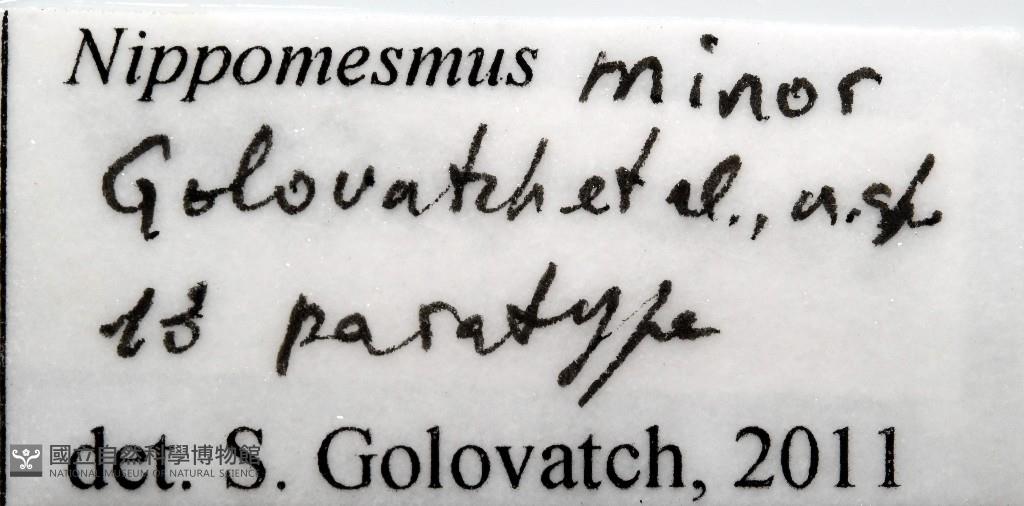 Nippomesmus minor
Golovatch et al., n.sp.
1♂ paratype
det. S. Golovatch, 2011
國立自然科學博物館
NATIONAL MUSEUM OF NATURAL SCIENCE